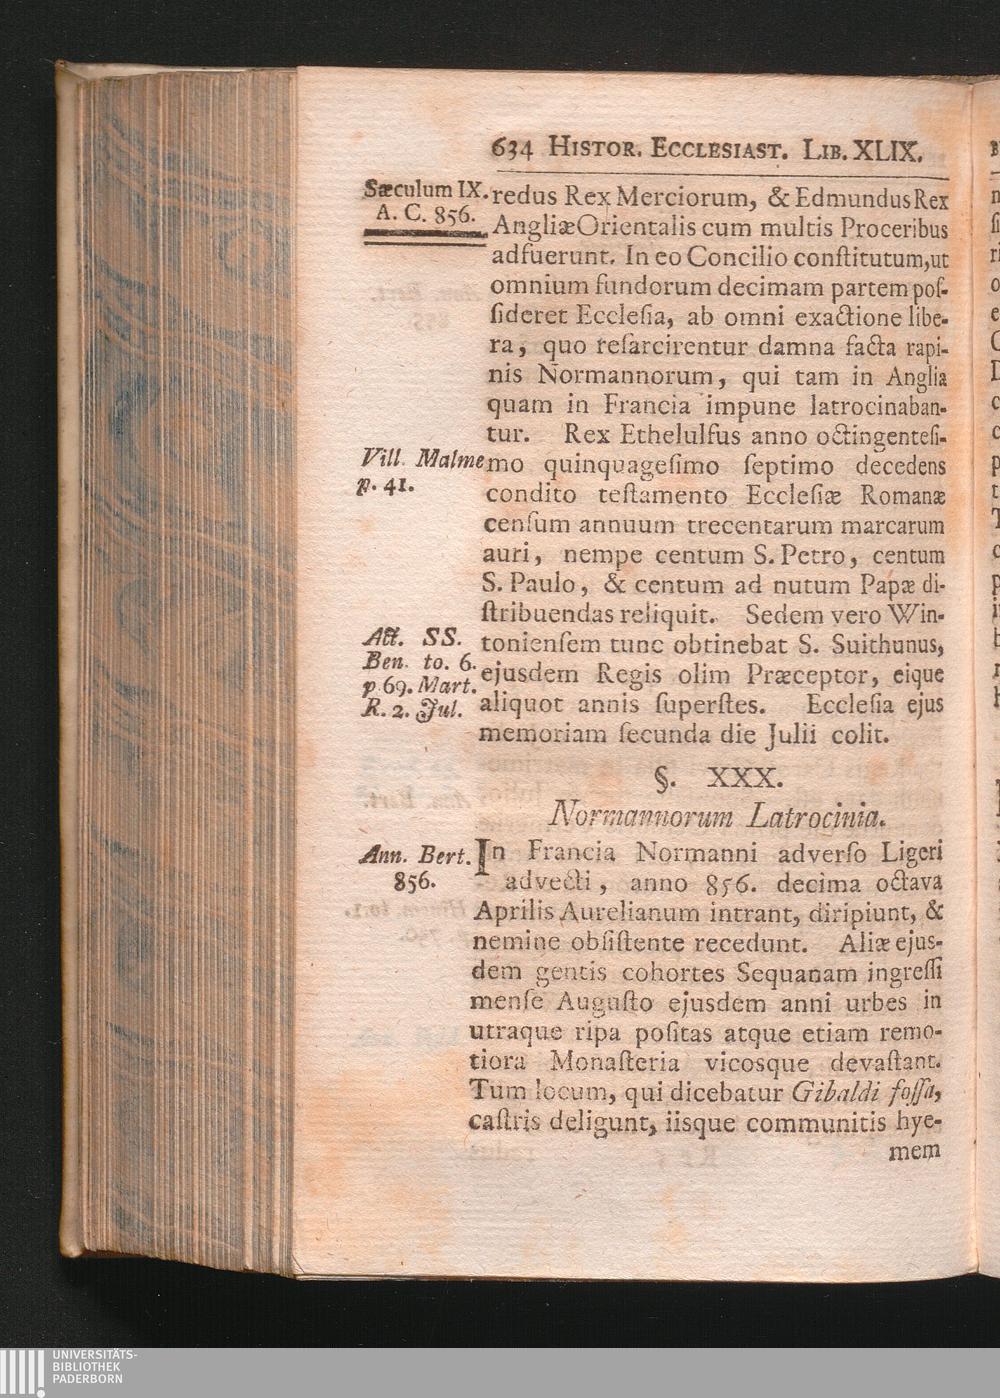 634 HISTOR. ECCLESIAST. LIB. XLIX.
Sæculum IX.
A. C. 856.
redus Rex Merciorum, & Edmundus Rex
Angliæ Orientalis cum multis Proceribus
adfuerunt. In eo Concilio conſtitutum, ut
omnium fundorum decimam partem poſ-
ſideret Eccleſia, ab omni exactione libe-
ra, quo reſarcirentur damna facta rapi-
nis Normannorum, qui tam in Anglia
quam in Francia impune latrocinaban-
tur. Rex Ethelulfus anno octingenteſi-
Vill. Malme
p. 41.
mo quinquageſimo ſeptimo decedens
condito teſtamento Eccleſiæ Romanæ
cenſum annuum trecentarum marcarum
auri, nempe centum S. Petro, centum
S. Paulo, & centum ad nutum Papæ di-
ſtribuendas reliquit. Sedem vero Win-
Act. SS.
Ben. to. 6.
p. 69. Mart.
R. 2. Jul.
tonienſem tunc obtinebat S. Suithunus,
ejusdem Regis olim Præceptor, eique
aliquot annis ſuperſtes. Eccleſia ejus
memoriam ſecunda die Julii colit.
§. XXX.
Normannorum Latrocinia.
Ann. Bert.
856.
In Francia Normanni adverſo Ligeri
advecti, anno 856. decima octava
Aprilis Aurelianum intrant, diripiunt, &
nemine obſiſtente recedunt. Aliæ ejus-
dem gentis cohortes Sequanam ingreſſi
menſe Auguſto ejusdem anni urbes in
utraque ripa poſitas atque etiam remo-
tiora Monaſteria vicosque devaſtant.
Tum locum, qui dicebatur Gibaldi foſſa,
caſtris deligunt, iisque communitis hye-
mem
UNIVERSITÄTS-
BIBLIOTHEK
PADERBORN